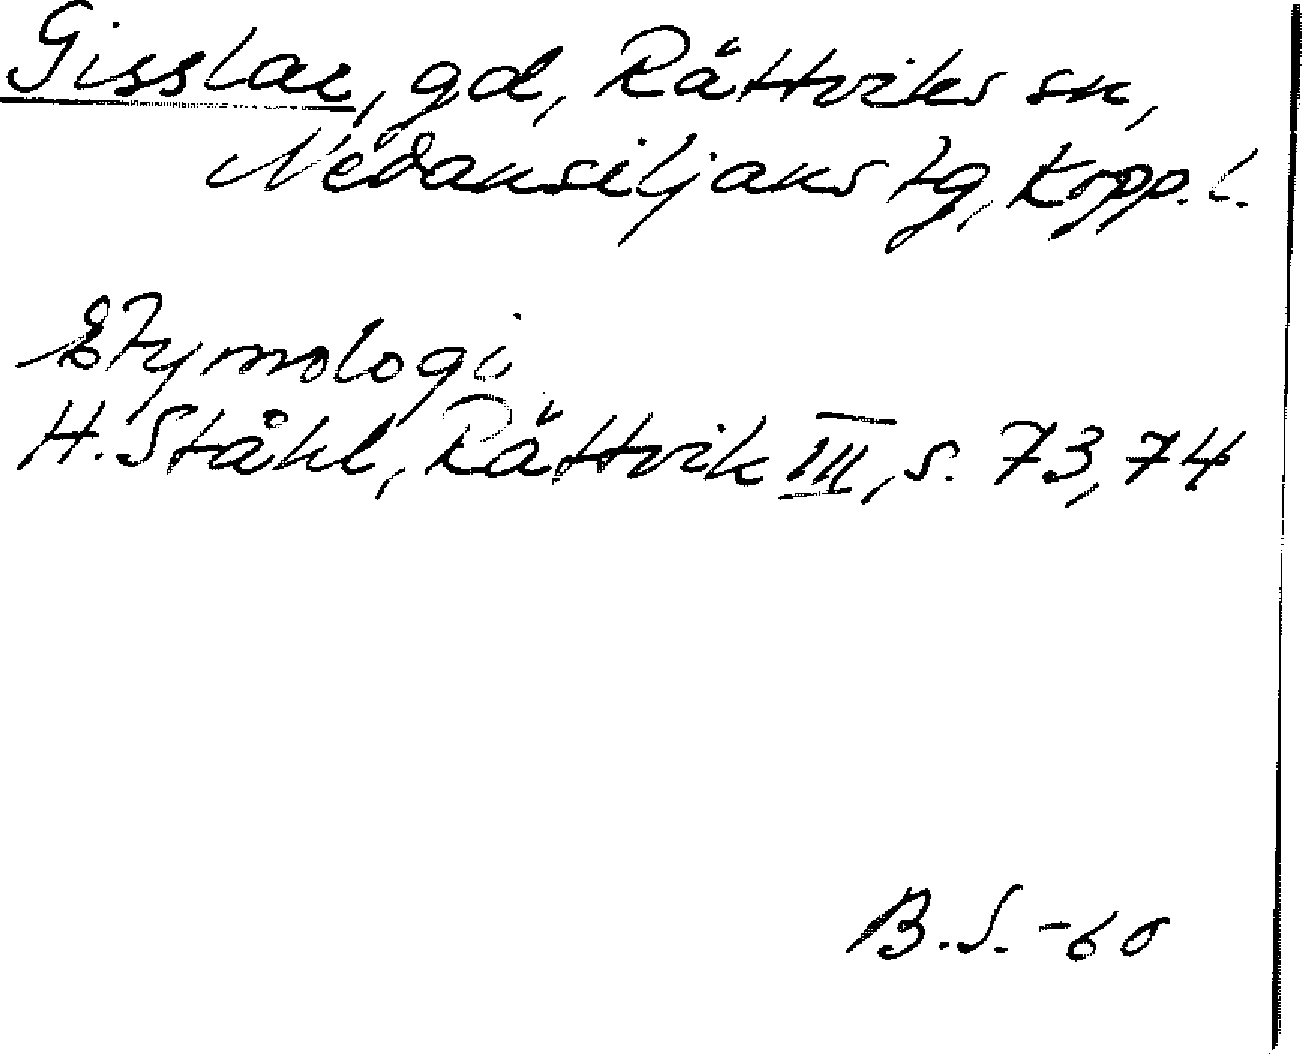 Gisslar, gd, Rättviks sn,
Nedansiljans tg, Kopp. l.
Etymologi
H. Ståhl, Rättvik III, s. 73, 74
B.S. -60